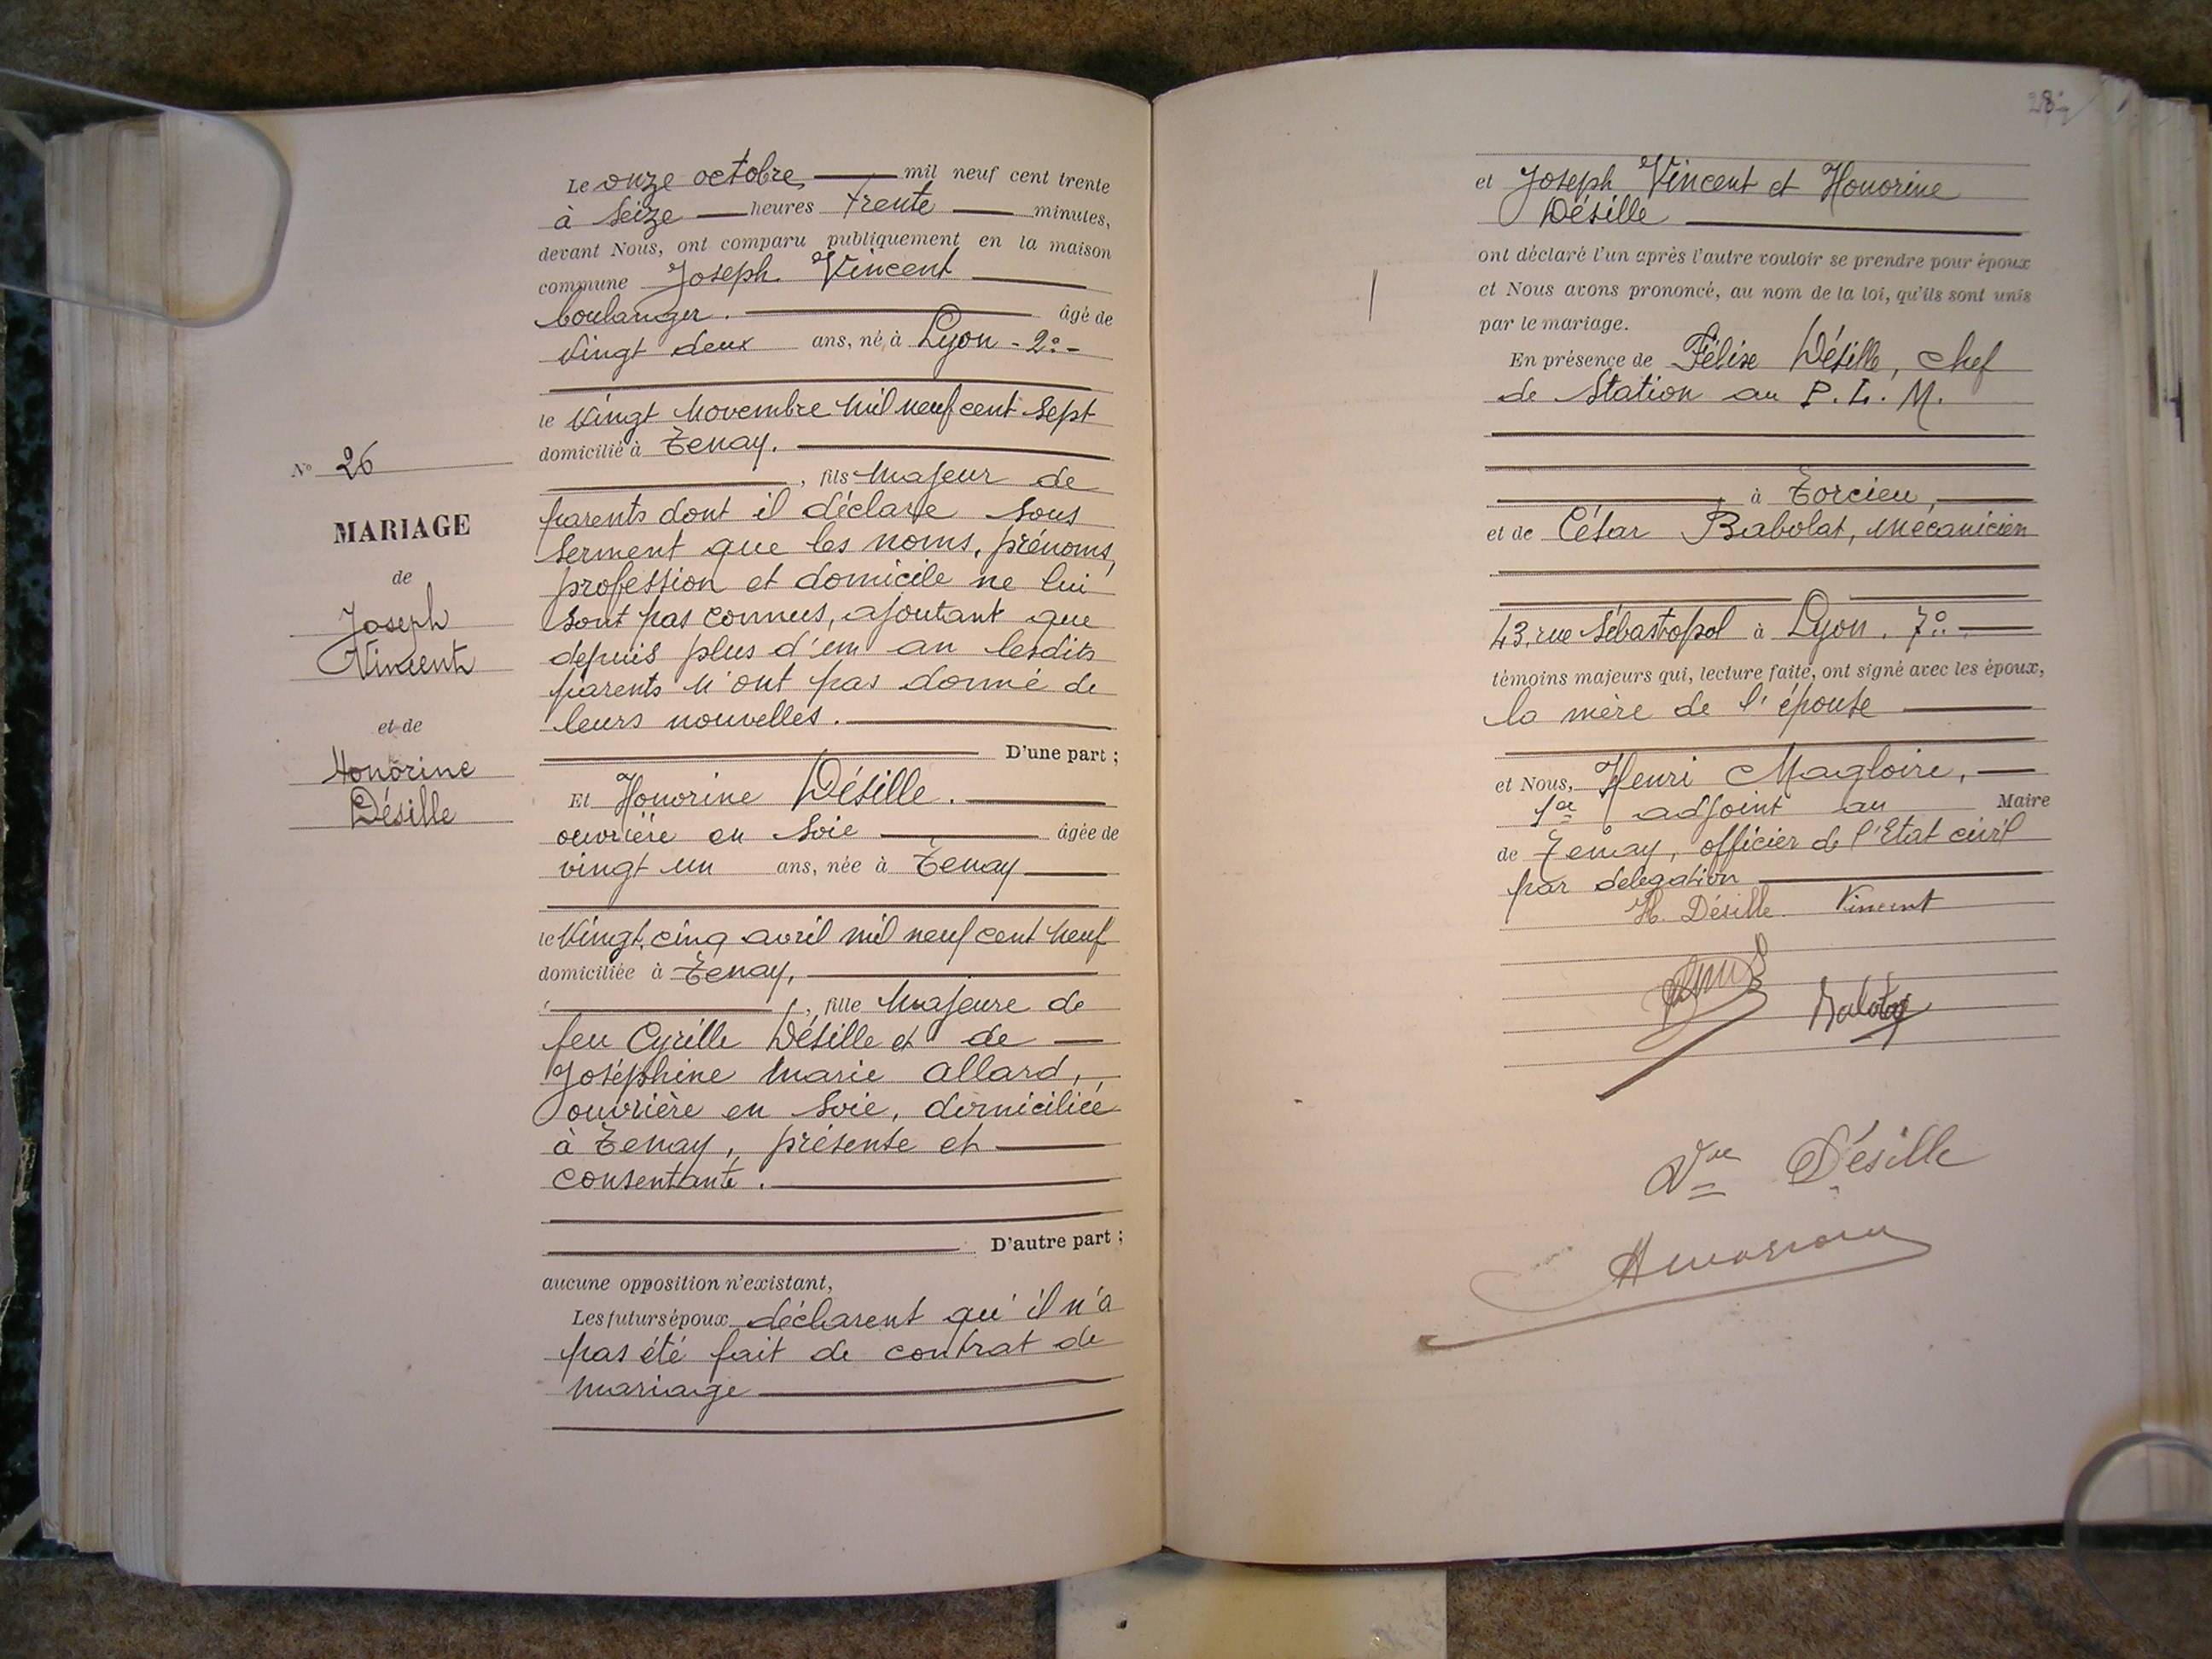 Le onze octobre mil neuf cent trente
à seize heures trente minutes,
devant Nous, ont comparu publiquement en la maison
commune Joseph Vincent
boulanger. âgé de
vingt deux ans, né à Lyon - 2e -
le vingt novembre mil neuf cent sept
domicilié à Tenay.
, fils majeur de
parents dont il déclare sous
serment que les noms, prénoms,
profession et domicile ne lui
sont pas connus, ajoutant que
depuis plus d'un an lesdits
parents n'ont pas donné de
leurs nouvelles.
D'une part ;
Et Honorine Désille.
ouvrière en soie âgée de
vingt un ans, née à Tenay
le vingt cinq avril mil neuf cent neuf
domiciliée à Tenay,
, fille majeure de
feu Cyrille Désille et de
Joséphine Marie Allard,
ouvrière en soie, domiciliée
à Tenay, présente et
consentante.
D'autre part ;
aucune opposition n'existant,
Les futurs époux déclarent qu'il n'a
pas été fait de contrat de
mariage
No 26
MARIAGE
de
Joseph
Vincent
et de
Honorine
Désille
et Joseph Vincent et Honorine
Désille
ont déclaré l'un après l'autre vouloir se prendre pour époux
et Nous avons prononcé, au nom de la loi, qu'ils sont unis
par le mariage.
En présence de Félix Désille, chef
de Station au P. L. M.
à Torcieu,
et de César Babolat, mécanicien
43, rue Sébastopol à Lyon. 7e.
témoins majeurs qui, lecture faite, ont signé avec les époux,
la mère de l'épouse
et Nous, Henri Magloire,
1er adjoint au Maire
de Tenay, officier de l'Etat civil
par délégation
H. Désille. Vincent
Babolat
Vve Désille